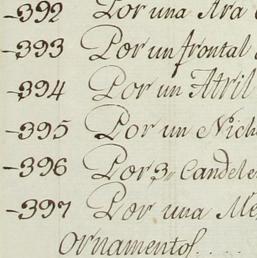 -392 Por una Ara
-393 Por un frontal
-394 Por un Atril
-395 Por un Nich
-396 Por 3,, Candele
-397 Por una Me
Ornamentos....